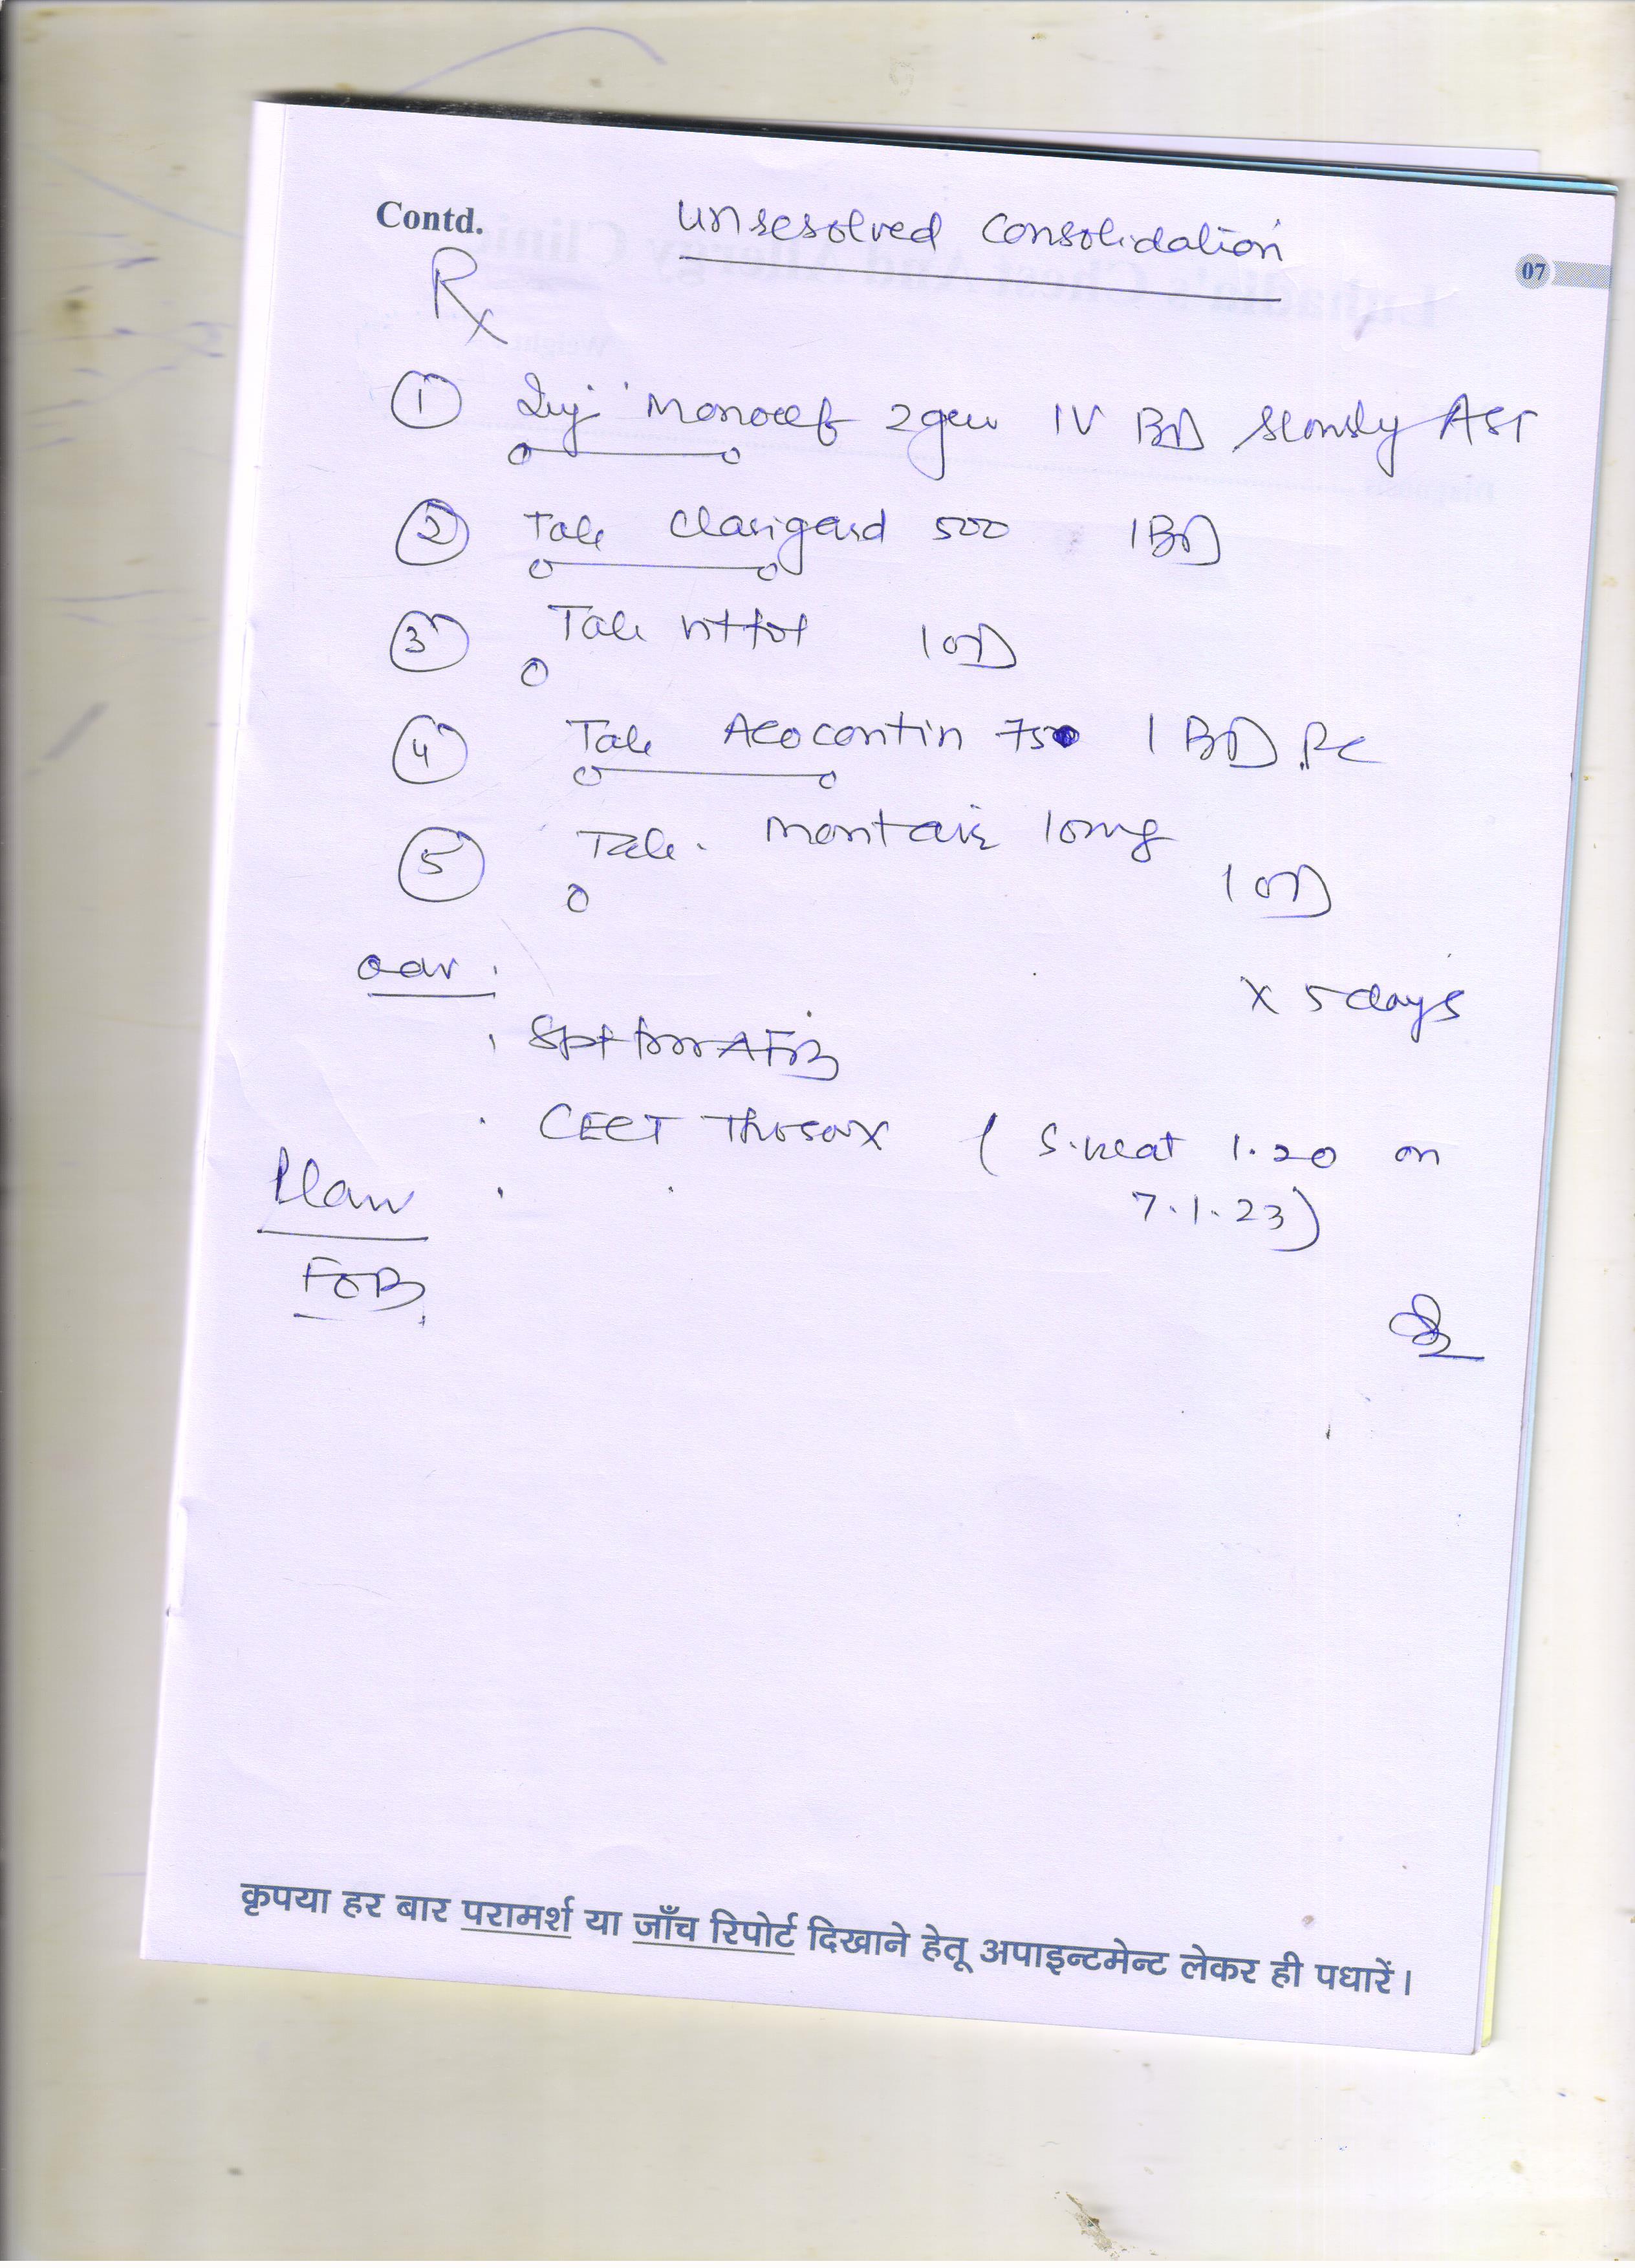 Contd.
unresolved consolidation
07
Rx
① Inj Monocef 2gm IV BD slowly AST
② Tab Clarigard 500 1 BD
③ Tab 1 OD
④ Tab Aeocontin 750 1 BD PC
⑤ Tab. montair long
1 OD
adv.
x 5 days
. Spt for AFB
. CECT Thorax ( S. creat 1.20 on
7.1.23)
Plan
FOB
कृपया हर बार परामर्श या जाँच रिपोर्ट दिखाने हेतू अपाइन्टमेन्ट लेकर ही पधारें।